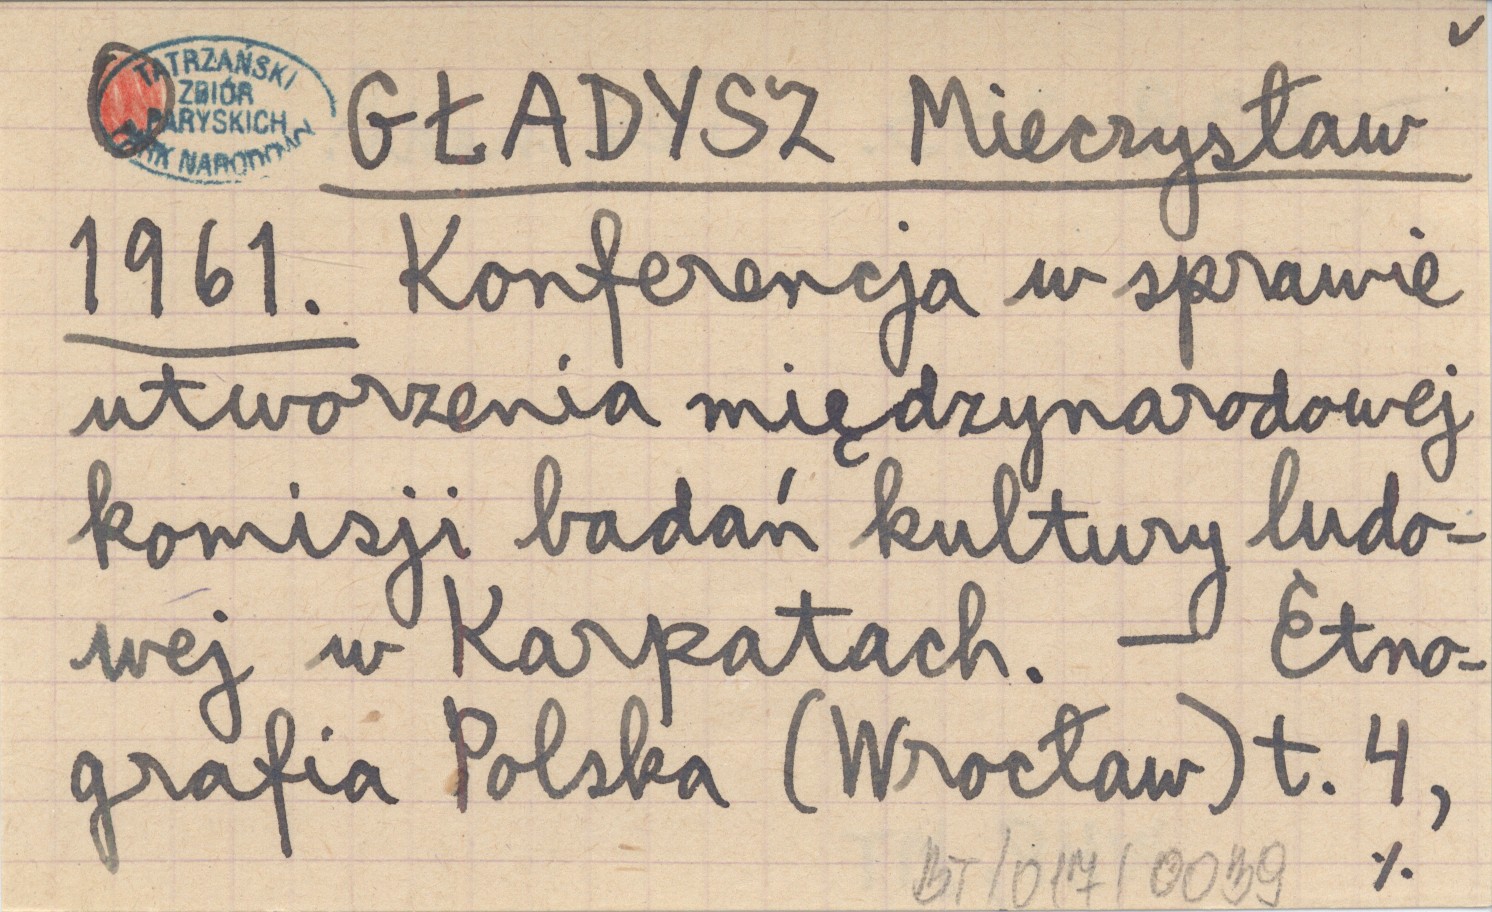 TATRZAŃSKI
ZBIÓR
PARYSKICH
PARK NARODOWY
GŁADYSZ Mieczysław
1961. Konferencja w sprawie
utworzenia międzynarodowej
komisji badań kultury ludo-
wej w Karpatach. — Etno-
grafia Polska (Wrocław) t. 4,
BT/017/0039 ./.